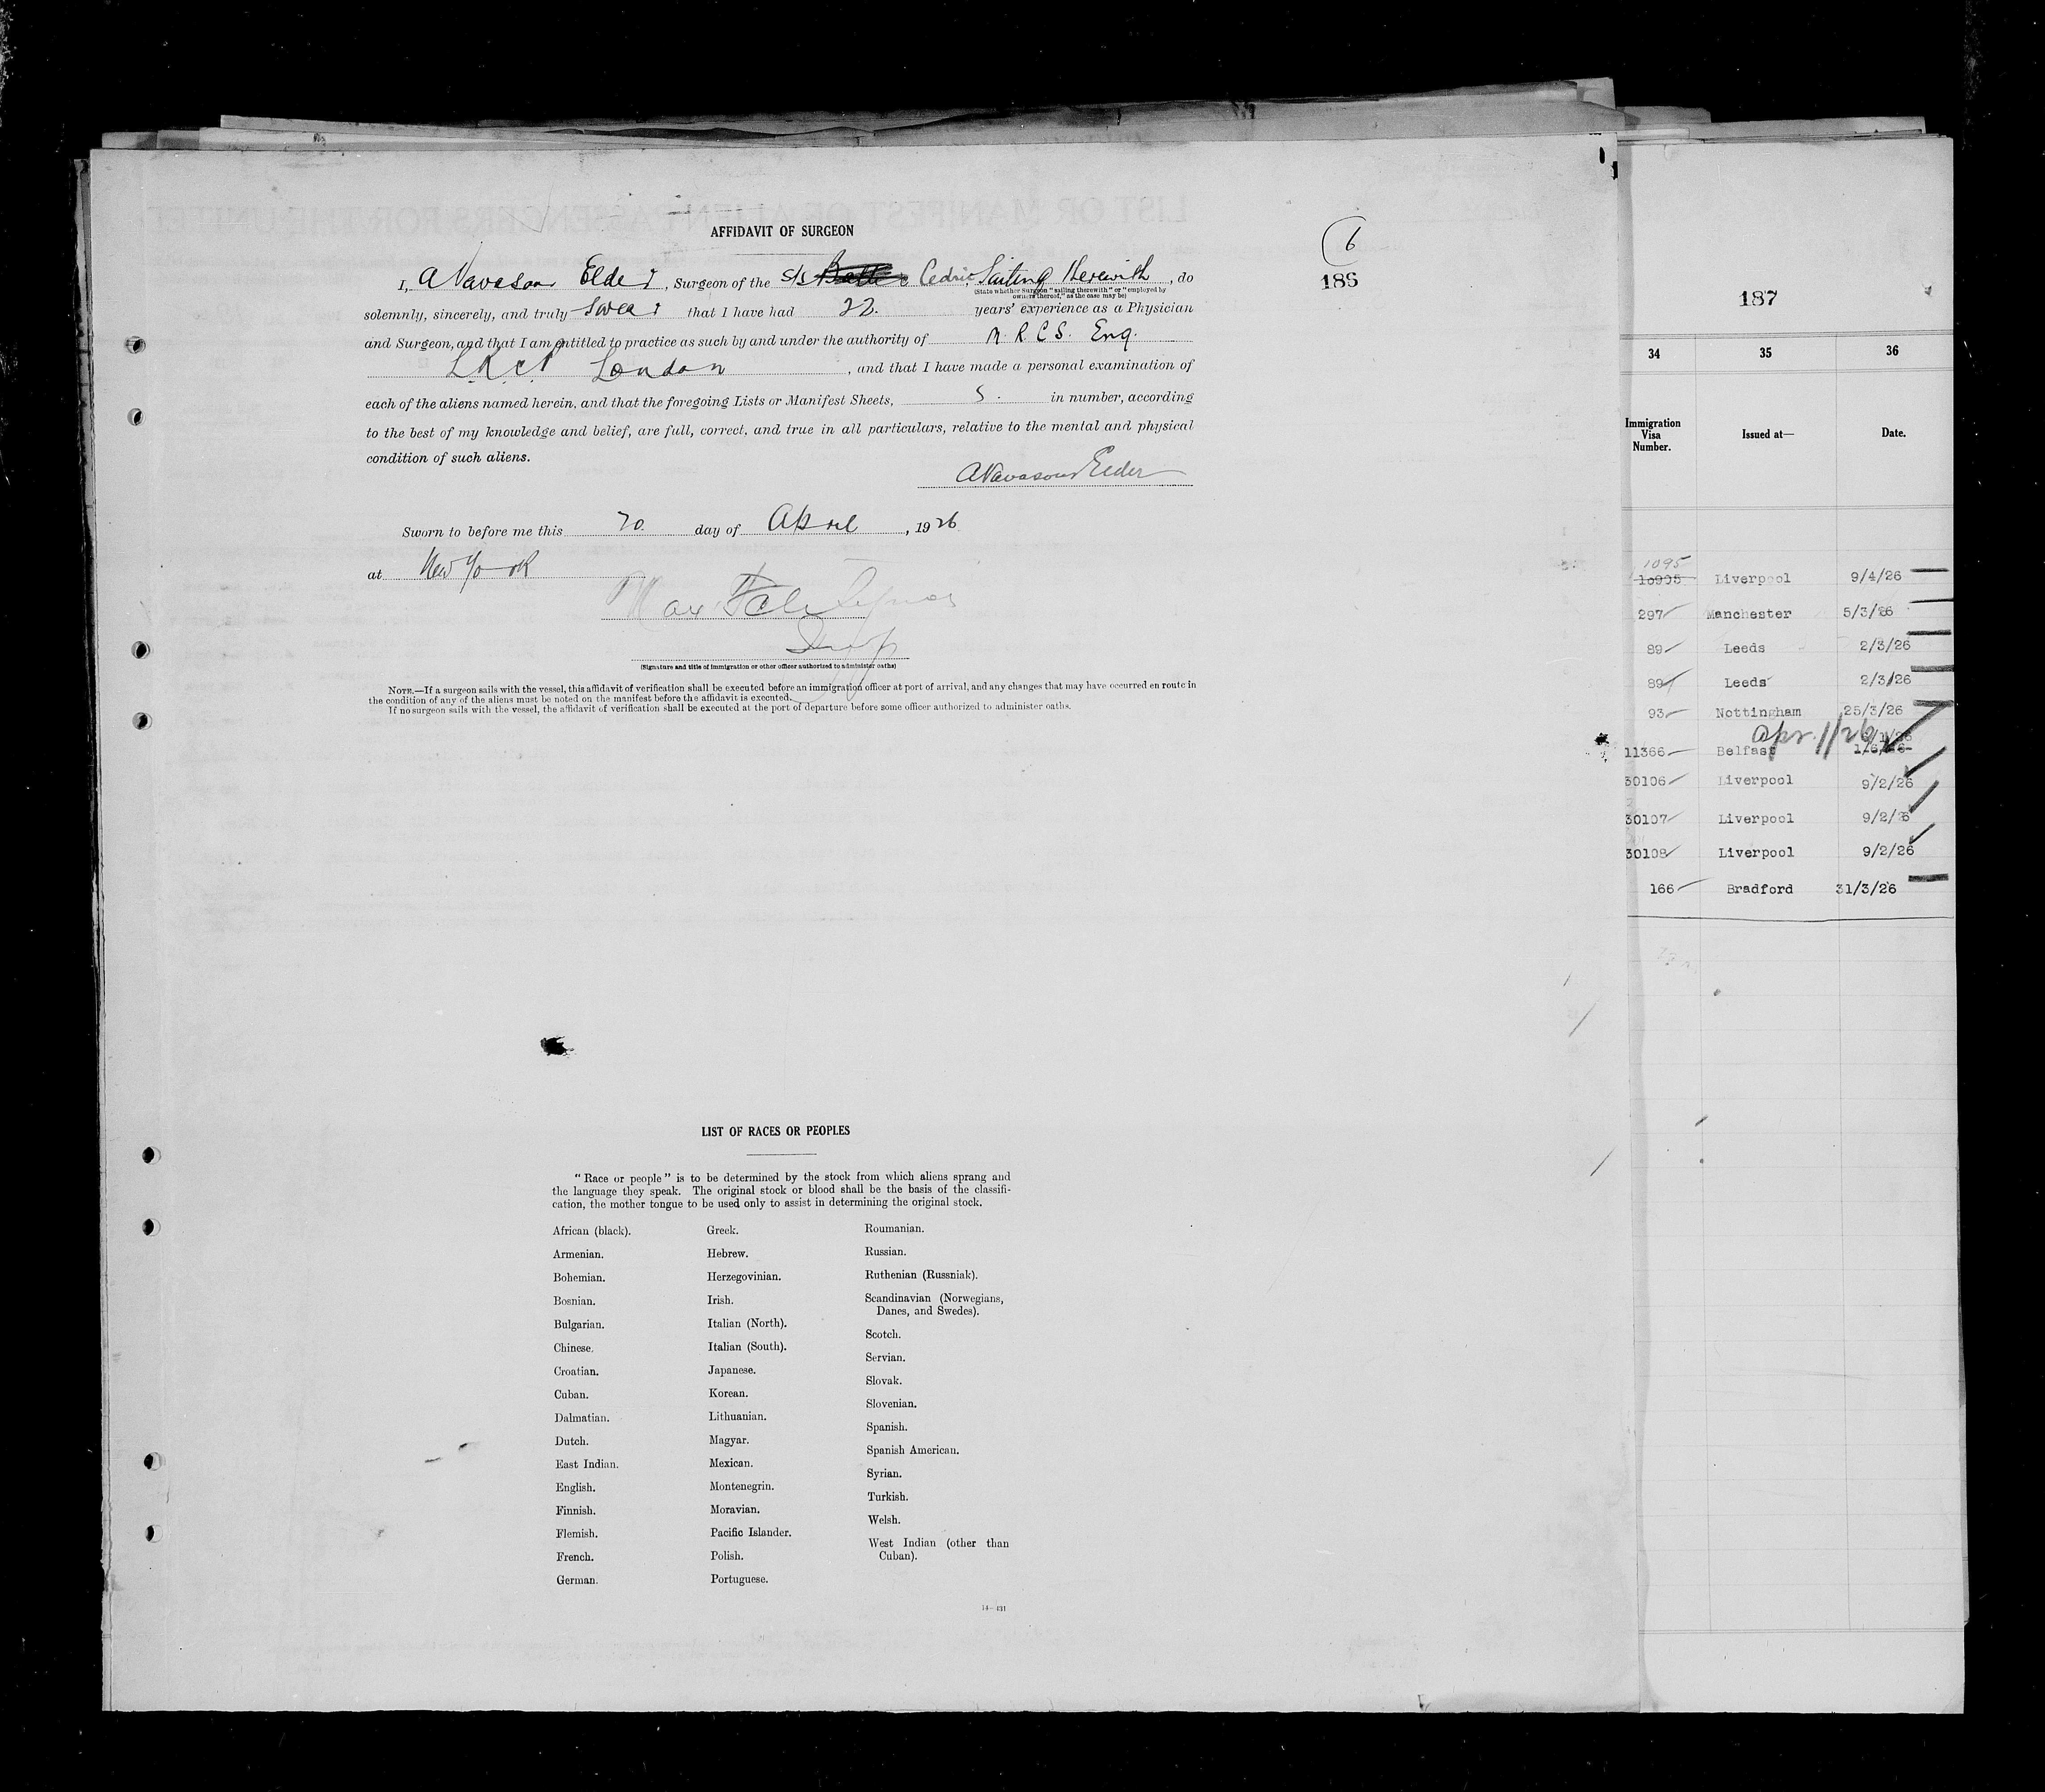 AFFIDAVIT OF SURGEON
6
185
I, A Vavasour Elder, Surgeon of the S/S Cedric, Sailing Herewith, do
(State whether Surgeon "sailing therewith" or "employed by
owners thereof," as the case may be)
solemnly, sincerely, and truly swear that I have had 22. years' experience as a Physician
and Surgeon, and that I am entitled to practice as such by and under the authority of M. R. C. S. Eng.
L.R.C.P. London, and that I have made a personal examination of
each of the aliens named herein, and that the foregoing Lists or Manifest Sheets, 5. in number, according
to the best of my knowledge and belief, are full, correct, and true in all particulars, relative to the mental and physical
condition of such aliens.
A Vavasour Elder
Sworn to before me this 20 day of April, 1926
at New York
Max
Insp
(Signature and title of immigration or other officer authorized to administer oaths)
NOTE.—If a surgeon sails with the vessel, this affidavit of verification shall be executed before an immigration officer at port of arrival, and any changes that may have occurred en route in
the condition of any of the aliens must be noted on the manifest before the affidavit is executed.
If no surgeon sails with the vessel, the affidavit of verification shall be executed at the port of departure before some officer authorized to administer oaths.
LIST OF RACES OR PEOPLES
"Race or people" is to be determined by the stock from which aliens sprang and
the language they speak. The original stock or blood shall be the basis of the classifi-
cation, the mother tongue to be used only to assist in determining the original stock.
African (black).
Armenian.
Bohemian.
Bosnian.
Bulgarian.
Chinese.
Croatian.
Cuban.
Dalmatian.
Dutch.
East Indian.
English.
Finnish.
Flemish.
French.
German.
Greek.
Hebrew.
Herzegovinian.
Irish.
Italian (North).
Italian (South).
Japanese.
Korean.
Lithuanian.
Magyar.
Mexican.
Montenegrin.
Moravian.
Pacific Islander.
Polish.
Portuguese.
Roumanian.
Russian.
Ruthenian (Russniak).
Scandinavian (Norwegians,
Danes, and Swedes).
Scotch.
Servian.
Slovak.
Slovenian.
Spanish.
Spanish American.
Syrian.
Turkish.
Welsh.
West Indian (other than
Cuban).
14—431
187
34 35 36
Immigration
Visa
Number.
Issued at—
Date.
1095
10995 Liverpool 9/4/26
297 Manchester 5/3/26
89 Leeds 2/3/26
89 Leeds 2/3/26
93 Nottingham 25/3/26
Apr. 1/26
11366 Belfast
30106 Liverpool 9/2/26
30107 Liverpool 9/2/26
30108 Liverpool 9/2/26
166 Bradford 31/3/26